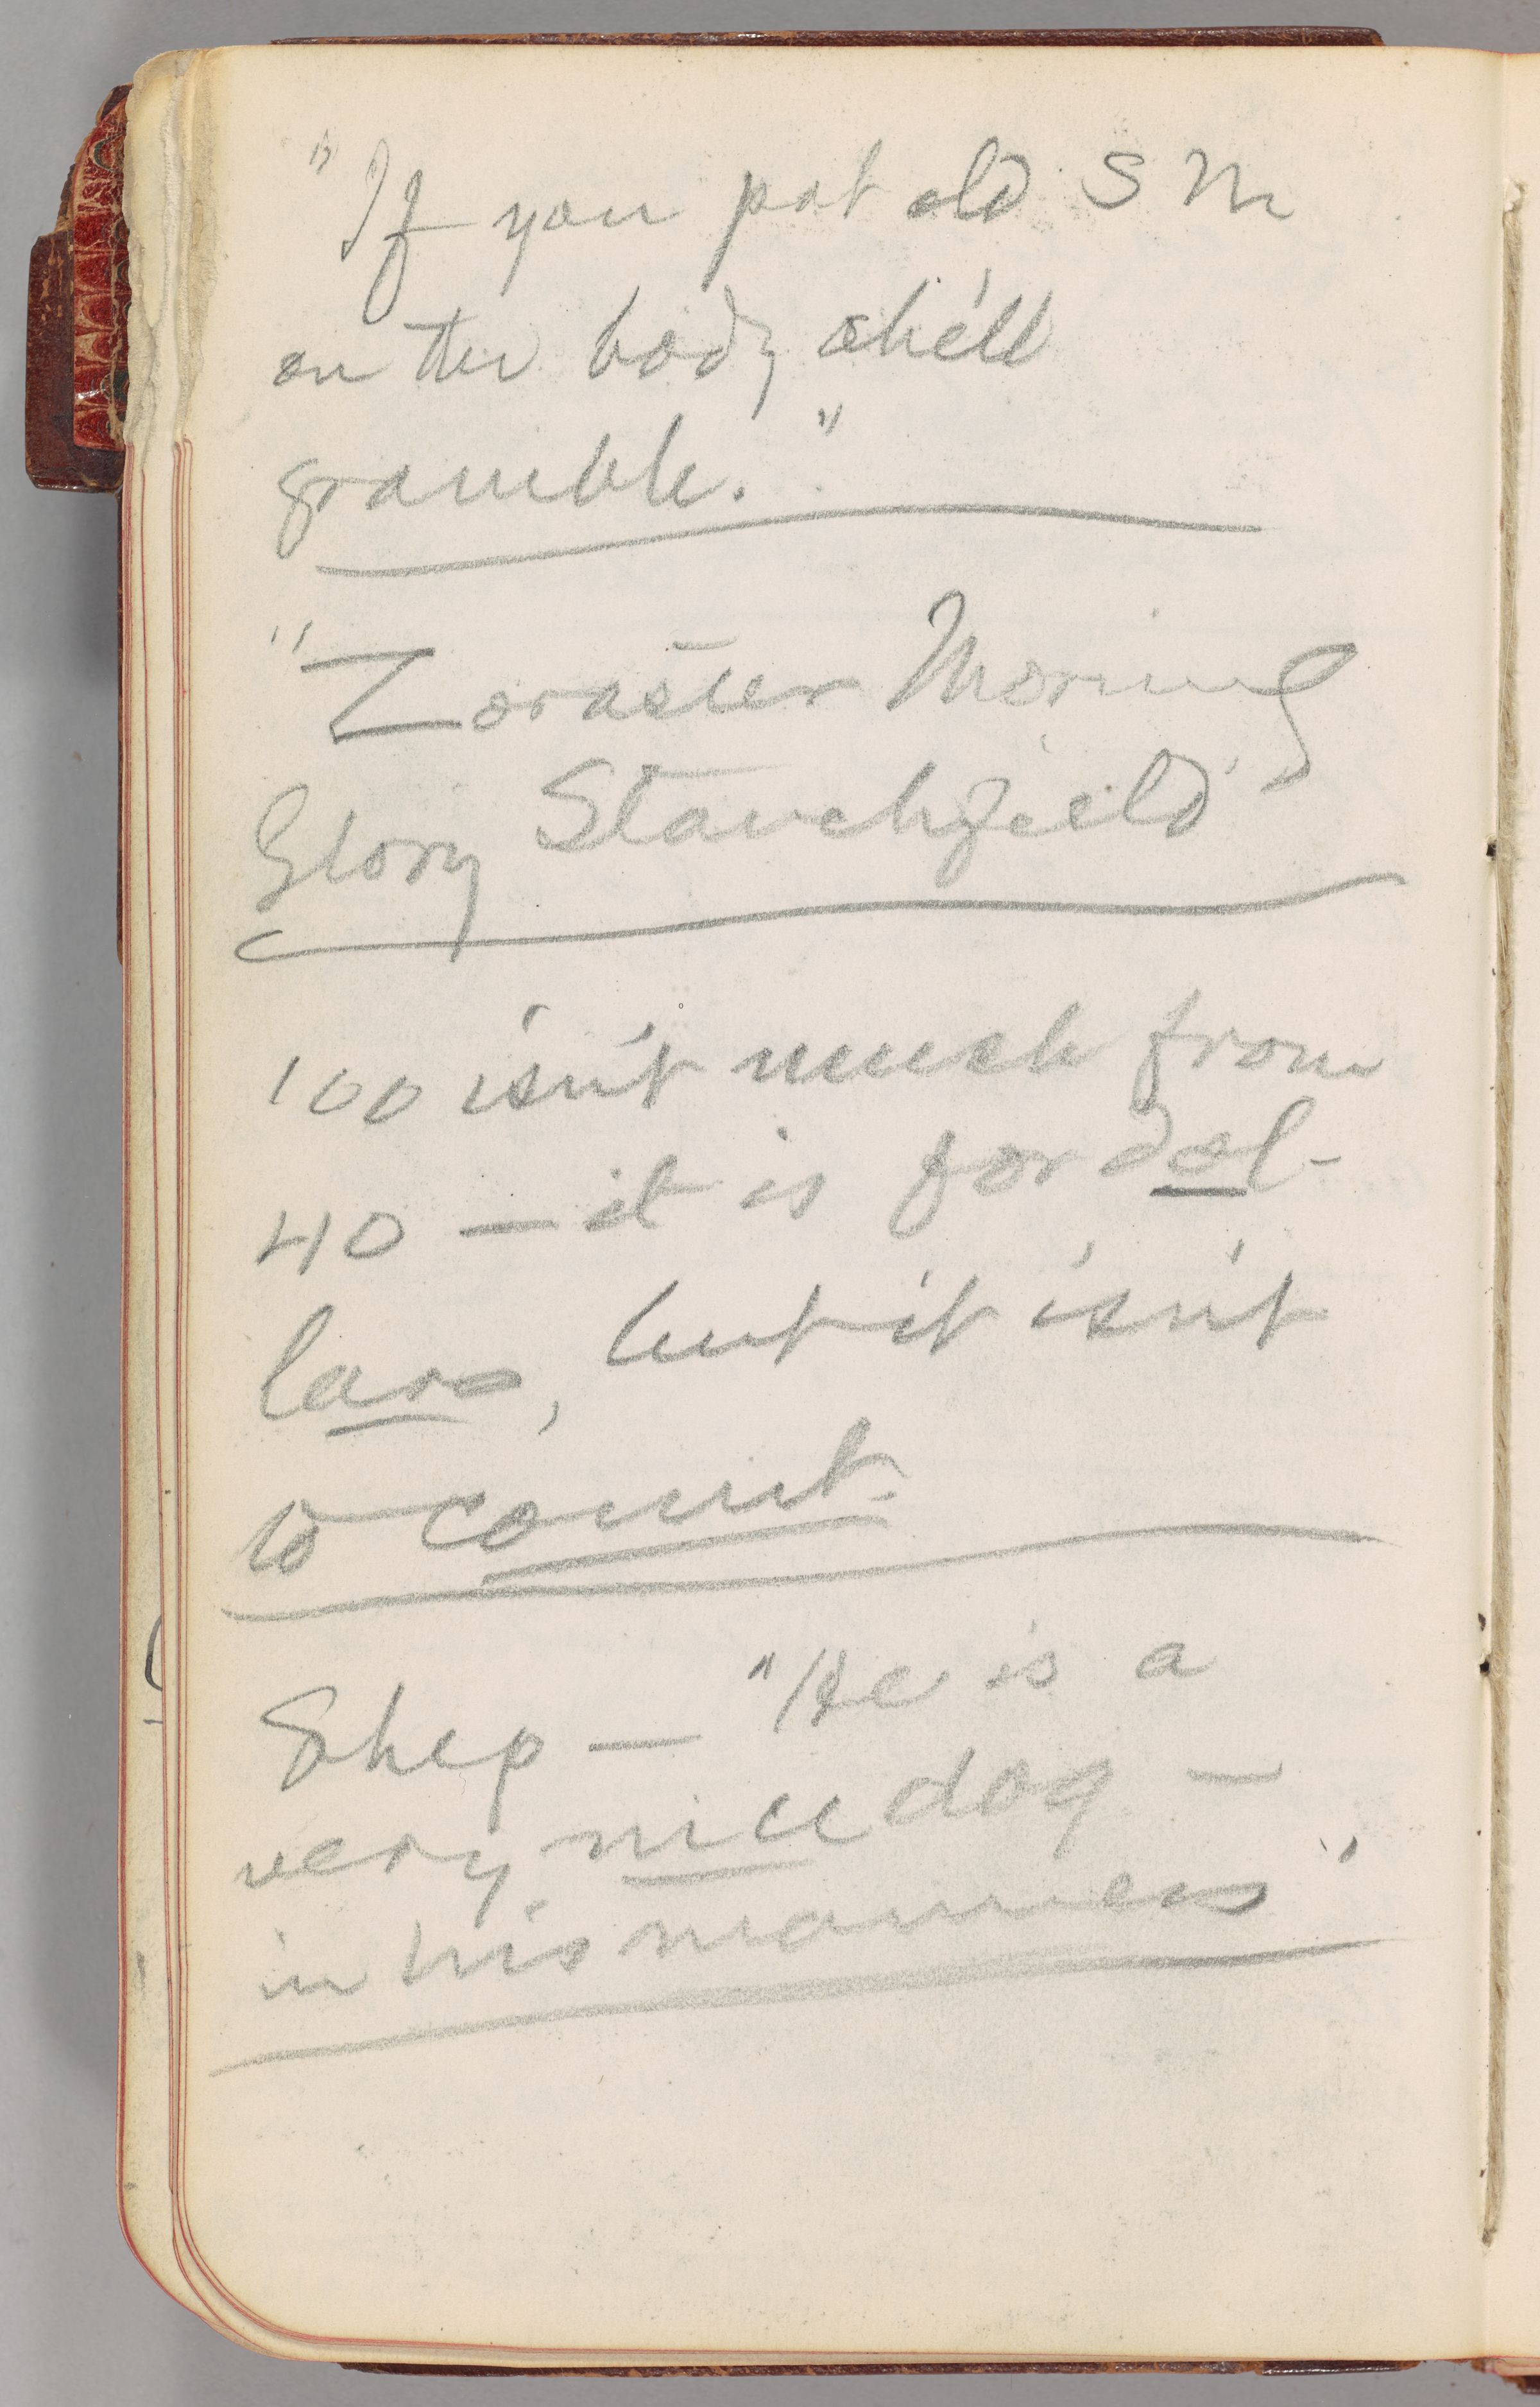 "If you pat old S M
on the body she'll
gramble."
"Zoraster Morning
Glory Stanchfield"
100 isn't much from
40 — it is for dol-
lars, but it isn't
to count.
Shep — "He is a
very nice dog —
in his manners"